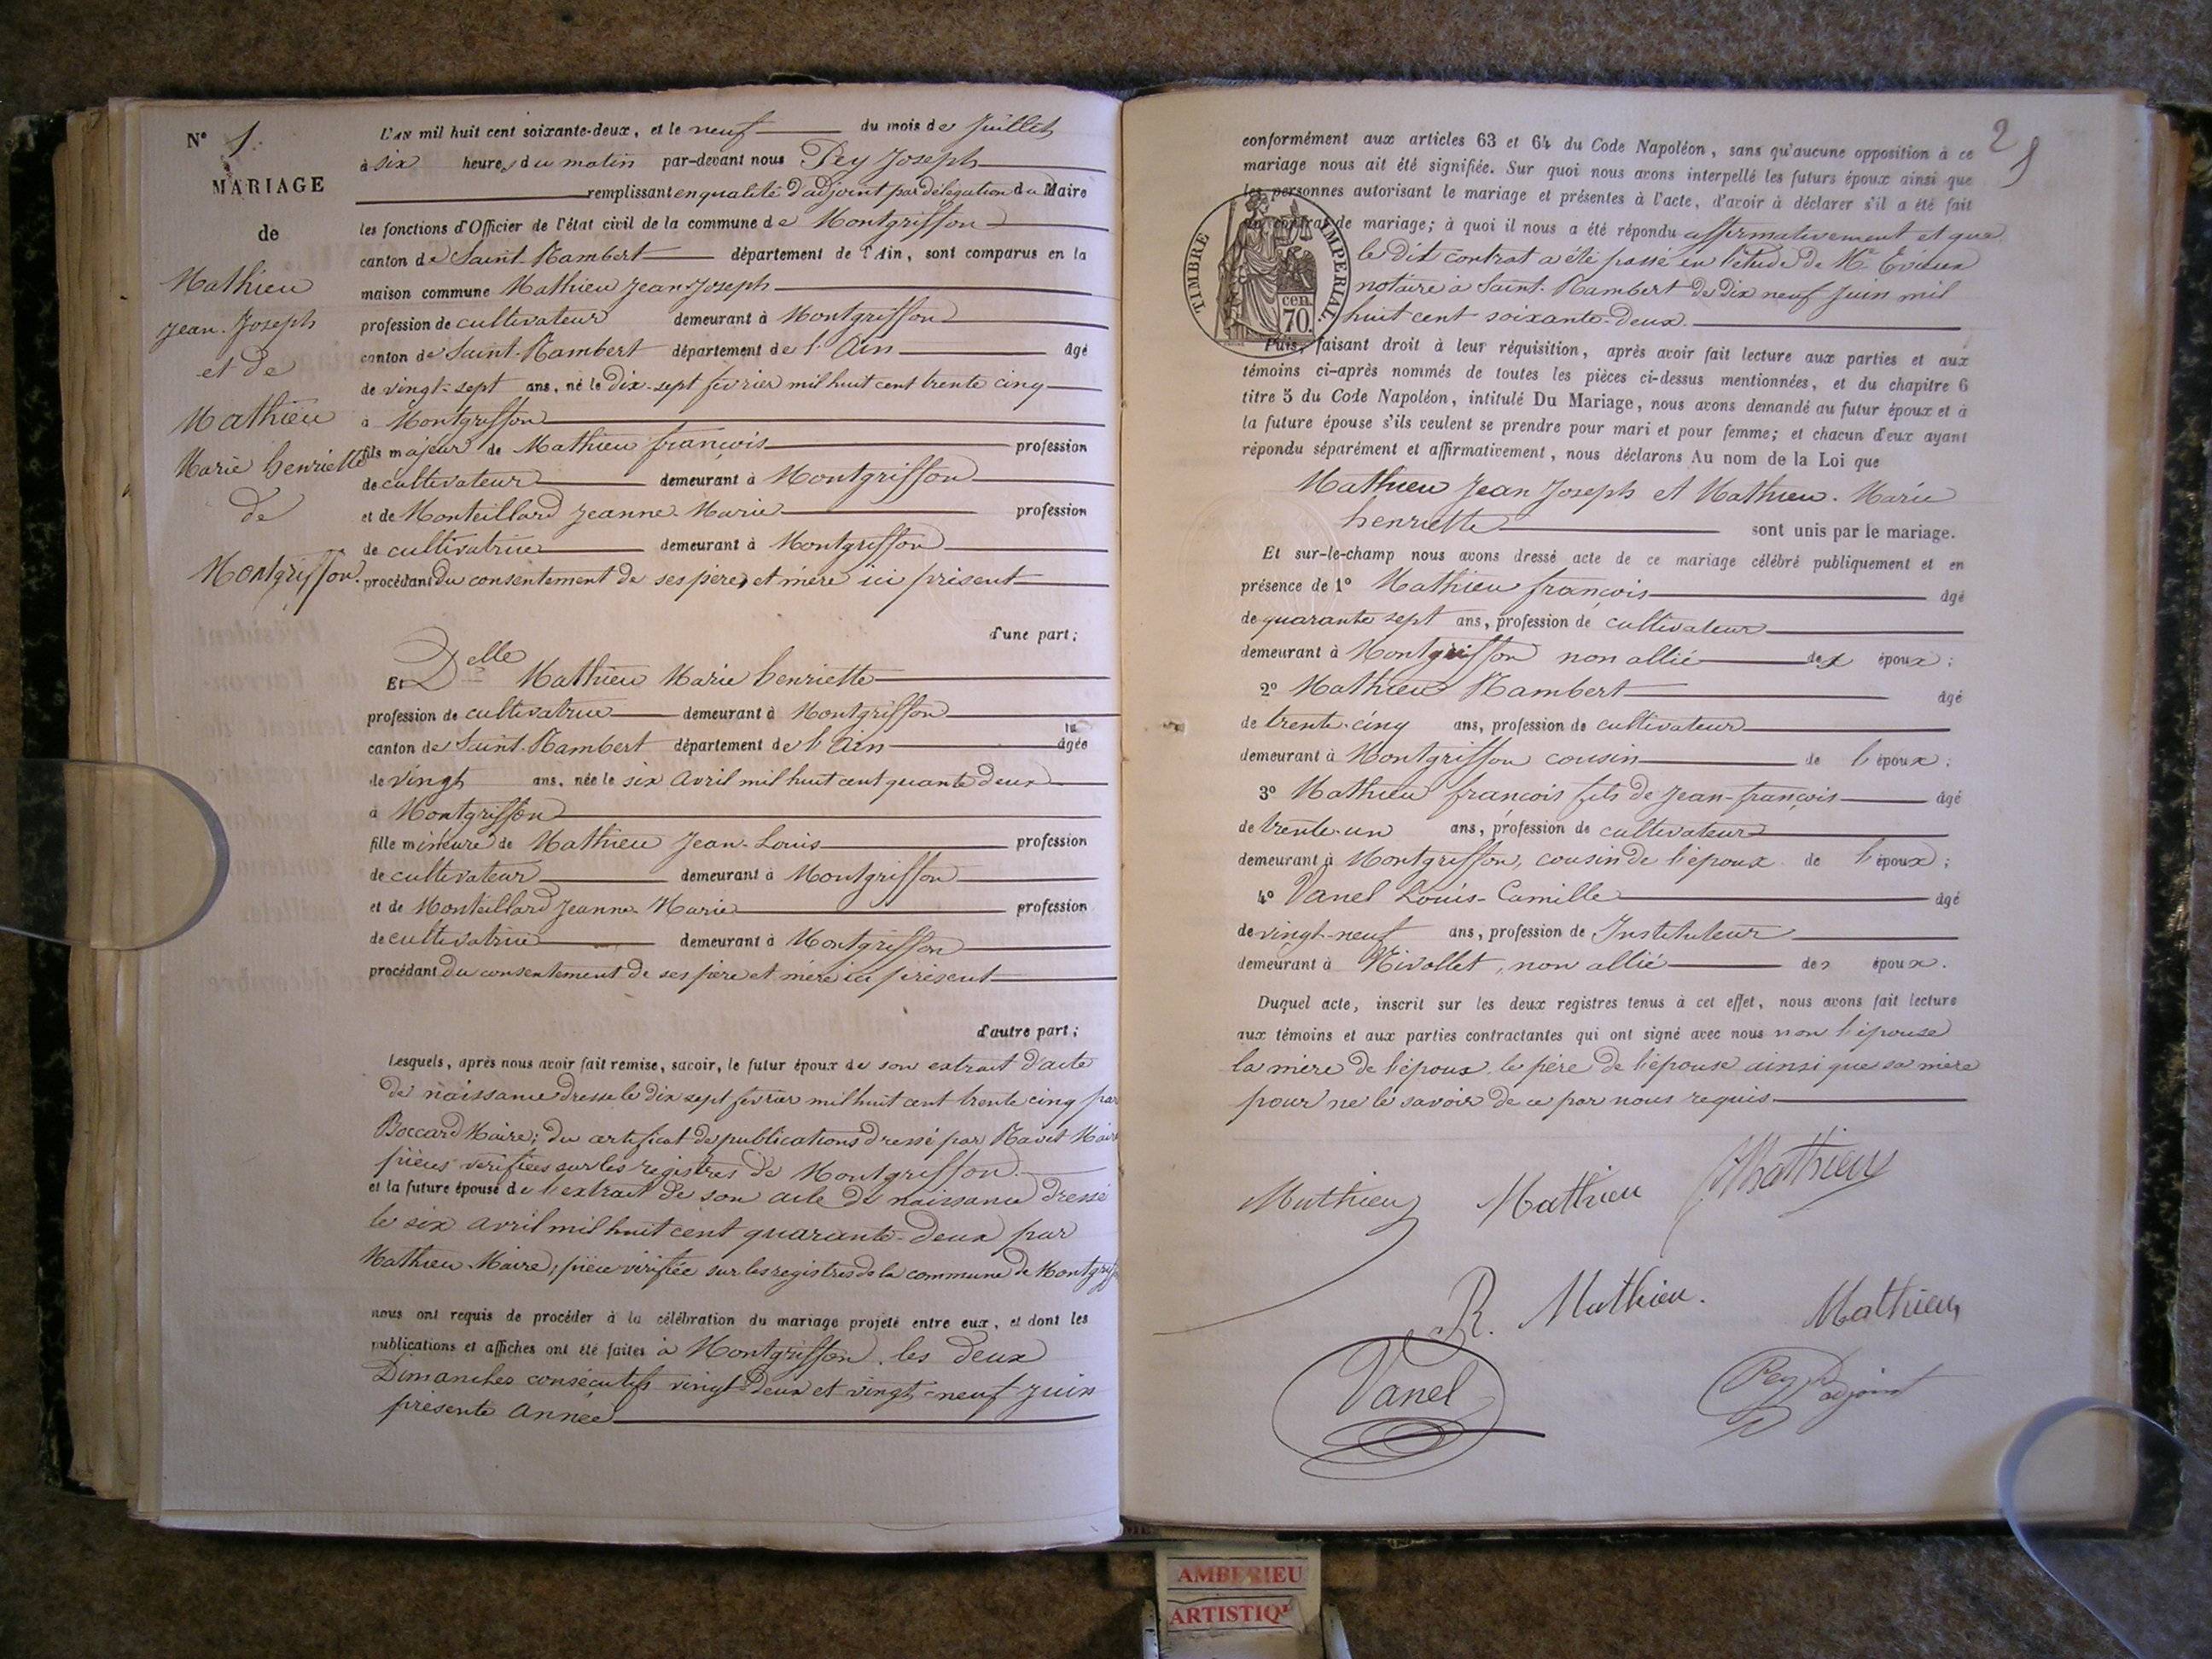 N° 1.
MARIAGE
de
Mathieu
Jean-Joseph
et de
Mathieu
Marie henriette
de
Montgriffon.
L'an mil huit cent soixante-deux, et le neuf du mois de Juillet
à six heures du matin par-devant nous Pey Joseph
remplissant en qualité d'adjoint par délégation du Maire
les fonctions d'Officier de l'état civil de la commune de Montgriffon
canton de Saint-Rambert département de l'Ain, sont comparus en la
maison commune Mathieu Jean-Joseph
profession de cultivateur demeurant à Montgriffon
canton de Saint-Rambert département de l'Ain âgé
de vingt-sept ans, né le dix-sept fevrier mil huit cent trente cinq
à Montgriffon
fils majeur de Mathieu françois profession
de cultivateur demeurant à Montgriffon
et de Monteillard Jeanne-Marie profession
de cultivatrice demeurant à Montgriffon
procédant du consentement de ses père et mère ici présent
d'une part;
Et Delle Mathieu Marie henriette
profession de cultivatrice demeurant à Montgriffon
canton de Saint-Rambert département de l'Ain âgée
de vingt ans, née le six avril mil huit cent quante deux
à Montgriffon
fille mineure de Mathieu Jean-Louis profession
de cultivateur demeurant à Montgriffon
et de Monteillard Jeanne-Marie profession
de cultivatrice demeurant à Montgriffon
procédant du consentement de ses père et mère ici présent
d'autre part;
Lesquels, après nous avoir fait remise, savoir, le futur époux de son extrait d'acte
de naissance dressé le dix sept fevrier mil huit cent trente cinq par
Boccard Maire; du certificat de publications dressé par Ravet Maire
pièces vérifiées sur les registres de Montgriffon.
et la future épouse de l'extrait de son acte de naissance dressé
le six avril mil huit cent quarante-deux par
Mathieu Maire; pièce vérifiée sur les registres de la commune de Montgriff
nous ont requis de procéder à la célébration du mariage projeté entre eux, et dont les
publications et affiches ont été faites à Montgriffon, les deux
Dimanches consécutifs vingt-deux et vingt-neuf Juin
présente année
2
conformément aux articles 63 et 64 du Code Napoléon, sans qu'aucune opposition à ce
mariage nous ait été signifiée. Sur quoi nous avons interpellé les futurs époux ainsi que
les personnes autorisant le mariage et présentes à l'acte, d'avoir à déclarer s'il a été fait
un contrat de mariage; à quoi il nous a été répondu affirmativement et que
le dit contrat a été passé en l'étude de Me
notaire à Saint-Rambert le dix neuf Juin mil
huit cent soixante-deux.
TIMBRE IMPÉRIAL
cen.
70.
Puis, faisant droit à leur réquisition, après avoir fait lecture aux parties et aux
témoins ci-après nommés de toutes les pièces ci-dessus mentionnées, et du chapitre 6
titre 5 du Code Napoléon, intitulé Du Mariage, nous avons demandé au futur époux et à
la future épouse s'ils veulent se prendre pour mari et pour femme; et chacun d'eux ayant
répondu séparément et affirmativement, nous déclarons Au nom de la Loi que
Mathieu Jean Joseph et Mathieu. Marie
henriette sont unis par le mariage.
Et sur-le-champ nous avons dressé acte de ce mariage célébré publiquement et en
présence de 1° Mathieu françois âgé
de quarante sept ans, profession de cultivateur
demeurant à Montgriffon non allié des époux;
2° Mathieu Rambert âgé
de trente-cinq ans, profession de cultivateur
demeurant à Montgriffon cousin de l'époux;
3° Mathieu françois fils de Jean-françois âgé
de trente-un ans, profession de cultivateur
demeurant à Montgriffon, cousin de l'époux de l'époux;
4° Vanel Louis-Camille âgé
de vingt-neuf ans, profession de Instituteur
demeurant à Nivollet, non allié des époux.
Duquel acte, inscrit sur les deux registres tenus à cet effet, nous avons fait lecture
aux témoins et aux parties contractantes qui ont signé avec nous non l'épouse
la mère de l'époux le père de l'épouse ainsi que sa mère
pour ne le savoir de ce par nous requis
Mathieu Mathieu Mathieu
R. Mathieu. Mathieu
Vanel Pey adjoint
AMBERIEU
ARTISTIQU